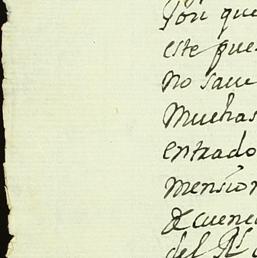 Por que
este pue
no save
Muchas
entrado
mension
de cuenc
del Rl